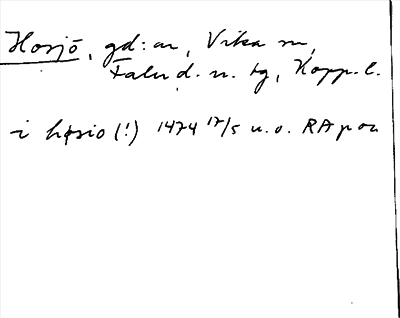 Horjö, gd:ar, Vika sn,
Falu d. s. tg, Kopp. l.
i hosio (!) 1474 17/5 u.o. RA p or